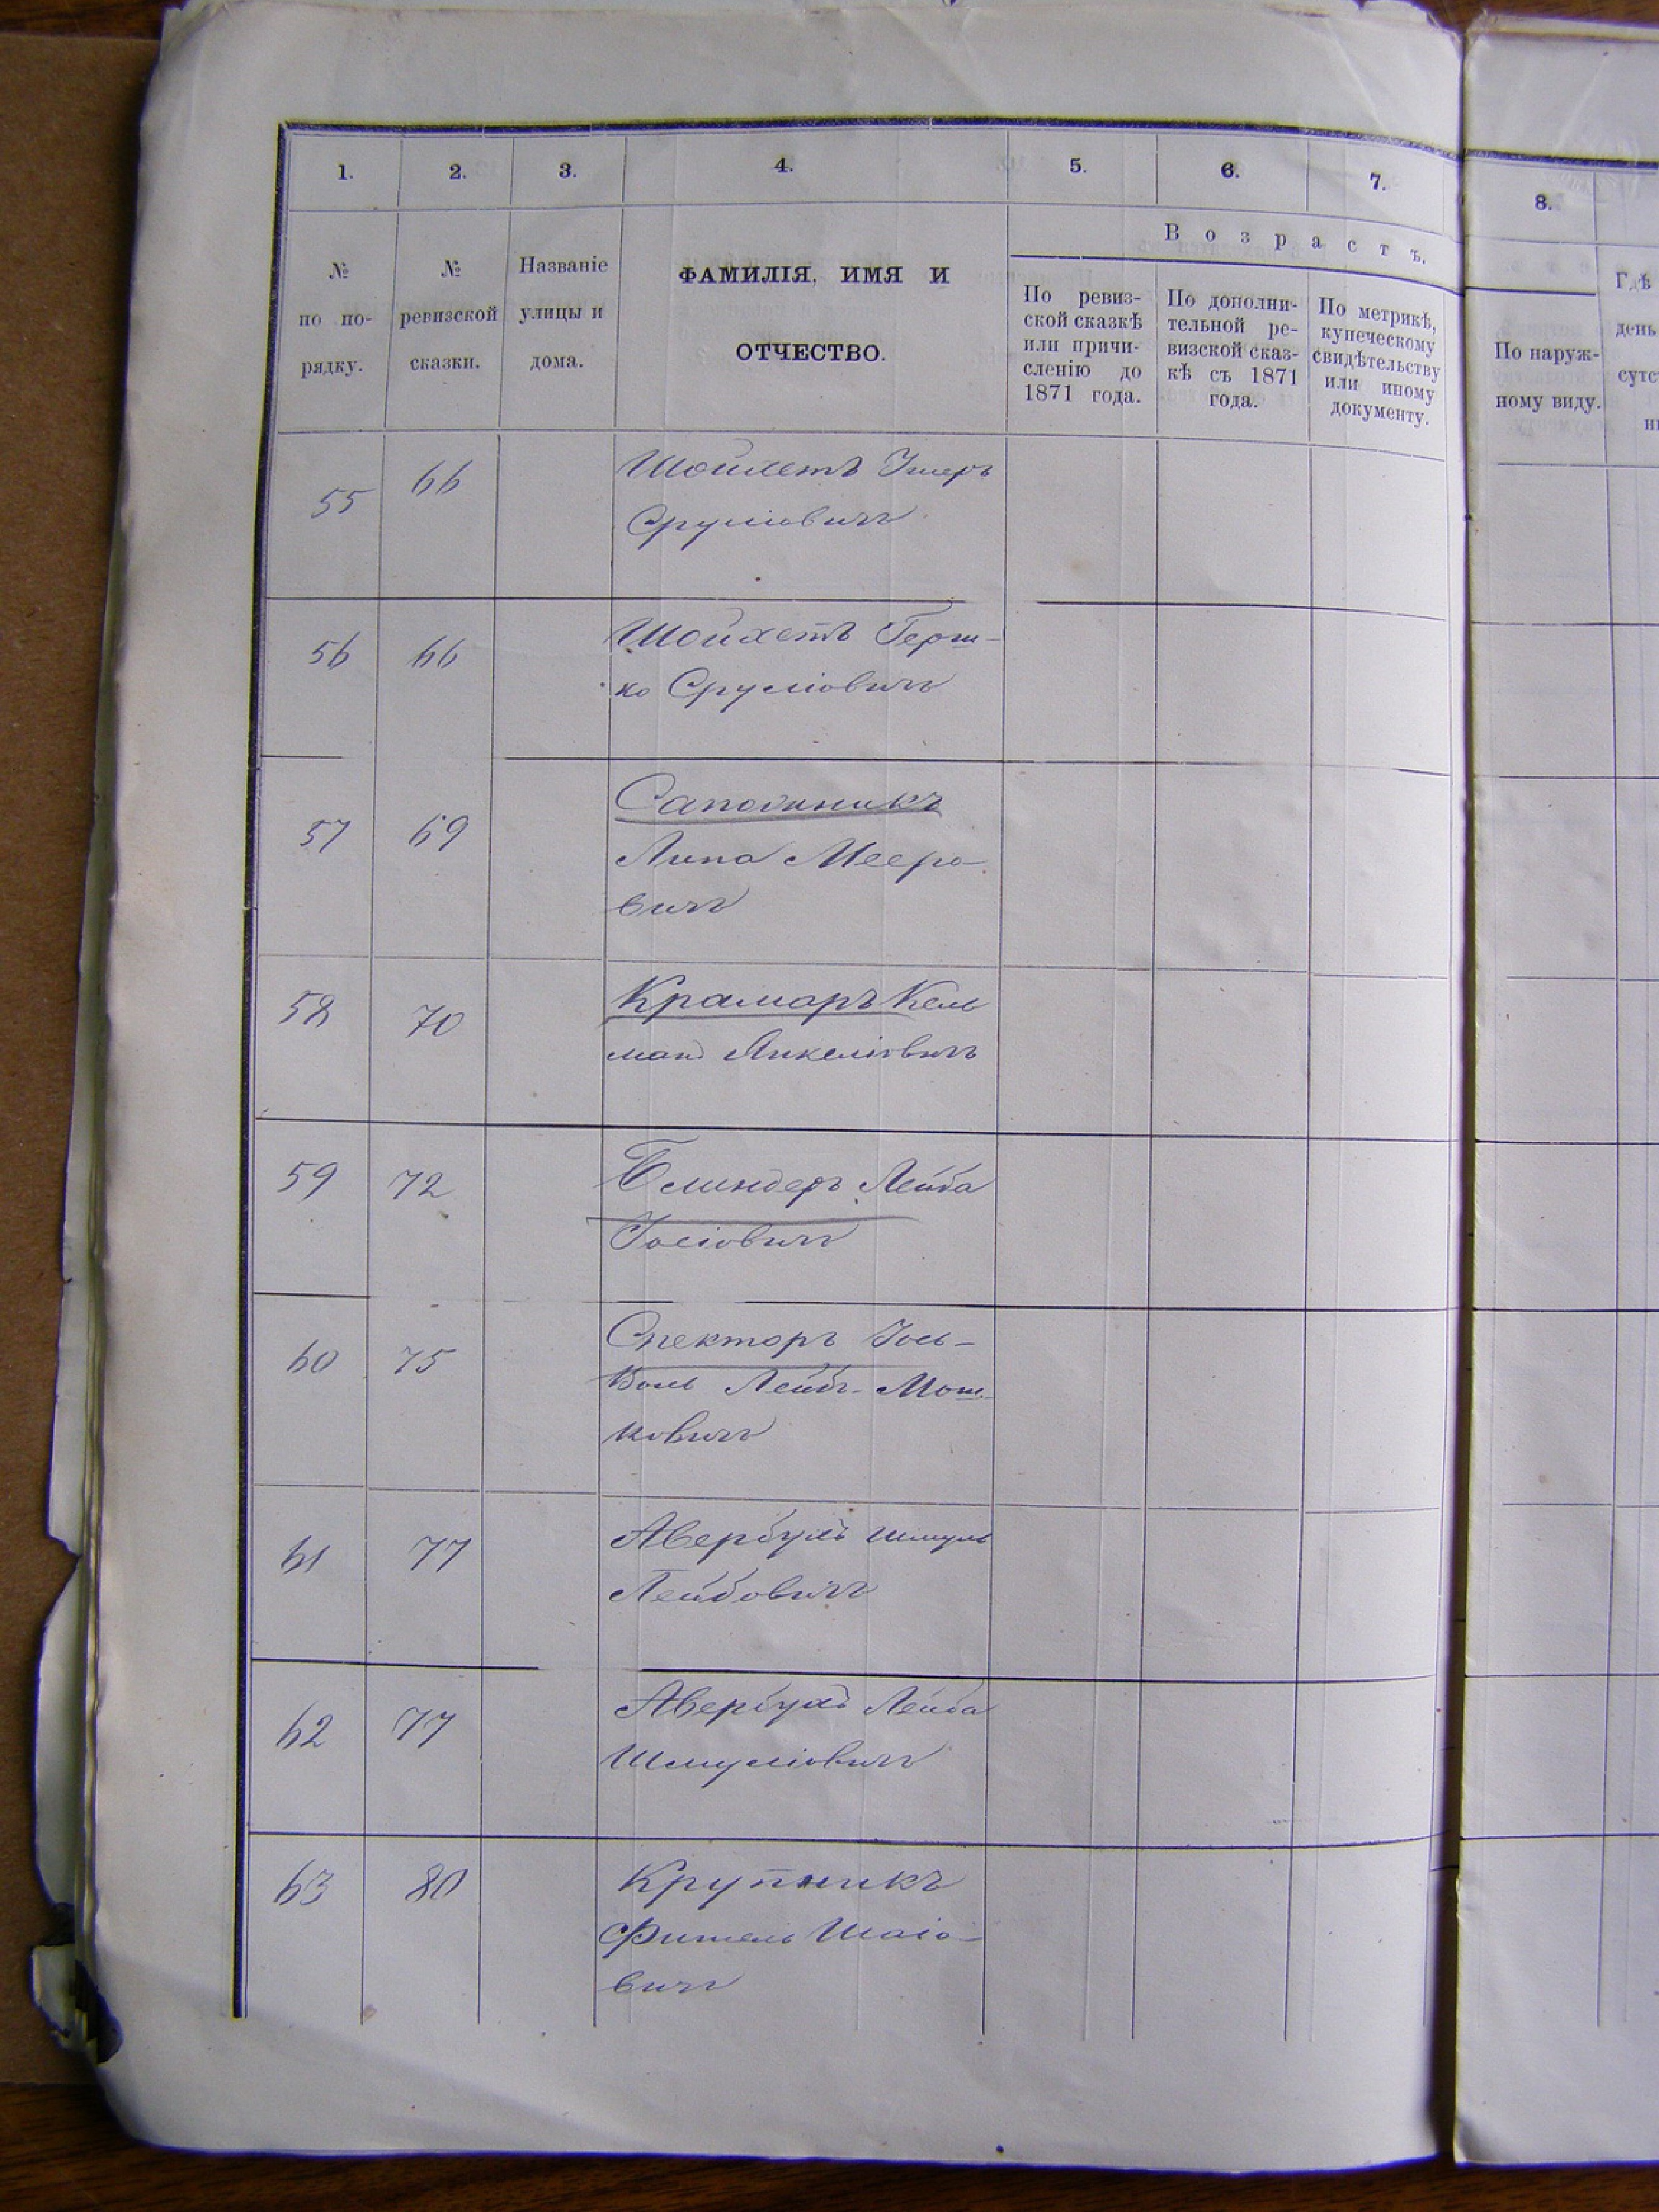 1. 2. 3. 4. 5. 6. 7. 8.
№ по по-рядку.
№ ревизской сказки.
Названіе улицы и дома.
ФАМИЛІЯ, ИМЯ И
ОТЧЕСТВО.
Возрастъ.
По ревиз-
ской сказкѣ
или причи-
сленію до
1871 года.
По дополни-
тельной ре-
визской сказ-
кѣ съ 1871
года.
По метрикѣ,
купеческому
свидѣтельству
или иному
документу.
По наруж-
ному виду.
Гдѣ
день
55 66 Шойхетъ
Сруліовичъ
56 66 Шойхетъ Герш-
ко Сруліовичъ
57 69 Сапожникъ
Липа Мееро-
вичъ
58 70 Крамаръ Кель
манъ Янкеліовичъ
59 72 Блиндеръ Лейба
Іосіовичъ
60 75 Спекторъ Іось-
Воль Лейбъ-Мош-
ковичъ
61 77 Авербухъ Шмуль
Лейбовичъ
62 77 Авербухъ Лейба
Шмуліовичъ
63 80 Крупникъ
Фишель Шаіо-
вичъ